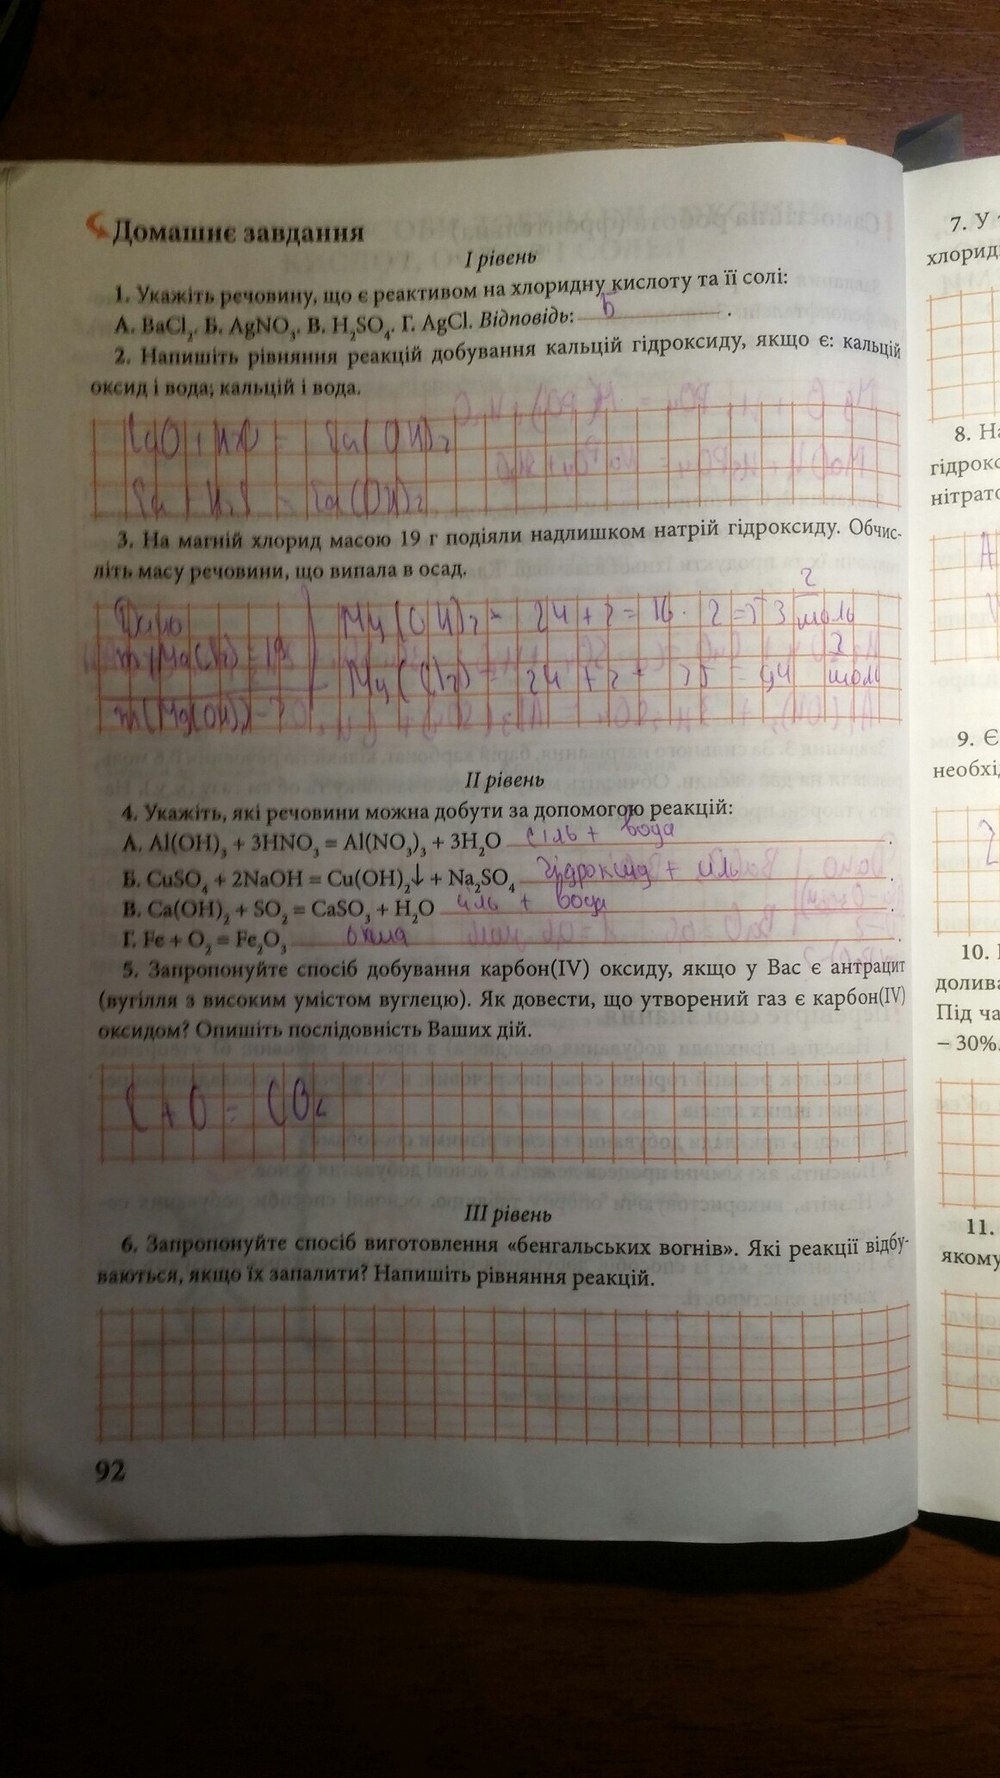 Домашнє завдання
І рівень
1. Укажіть речовину, що є реактивом на хлоридну кислоту та її солі:
А. BaCl₂. Б. AgNO₃. В. H₂SO₄. Г. AgCl. Відповідь: Б .
2. Напишіть рівняння реакцій добування кальцій гідроксиду, якщо є: кальцій
оксид і вода; кальцій і вода.
CaO + H2O = Ca(OH)₂
Ca + = Ca(OH)₂
3. На магній хлорид масою 19 г подіяли надлишком натрій гідроксиду. Обчис-
літь масу речовини, що випала в осад.
Дано
Mg(OH)₂ = 24 + 2 = 16 · 2 = г
моль
24 + 2 = 94 г
моль
m(Mg(OH)₂) - ?
ІІ рівень
4. Укажіть, які речовини можна добути за допомогою реакцій:
А. Al(OH)₃ + 3HNO₃ = Al(NO₃)₃ + 3H₂O сіль + вода .
Б. CuSO₄ + 2NaOH = Cu(OH)₂↓ + Na₂SO₄ гідроксид + сіль .
В. Ca(OH)₂ + SO₂ = CaSO₃ + H₂O сіль + вода .
Г. Fe + O₂ = Fe₂O₃ .
5. Запропонуйте спосіб добування карбон(IV) оксиду, якщо у Вас є антрацит
(вугілля з високим умістом вуглецю). Як довести, що утворений газ є карбон(IV)
оксидом? Опишіть послідовність Ваших дій.
C + O = CO₂
ІІІ рівень
6. Запропонуйте спосіб виготовлення «бенгальських вогнів». Які реакції відбу-
ваються, якщо їх запалити? Напишіть рівняння реакцій.
92
7. У
хлорид
8. На
гідрокс
нітрато
9. Є
необхі
10.
долива
Під ча
– 30%.
11.
якому